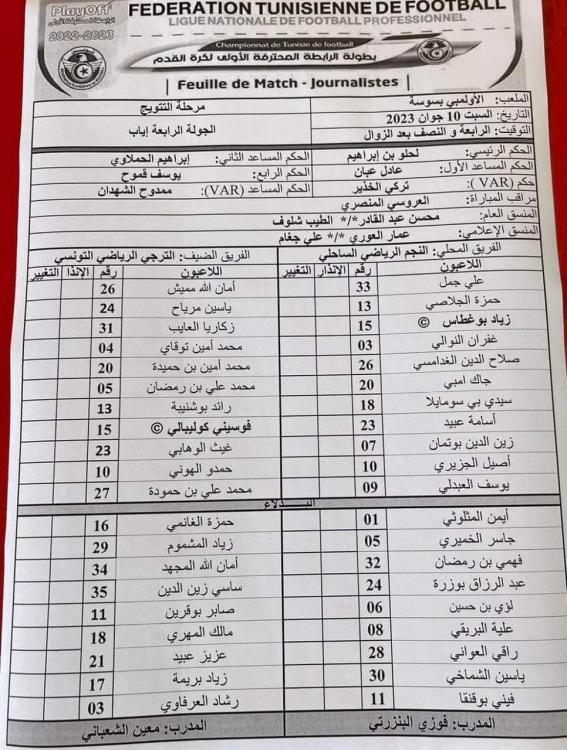 PlayOff
2022-2023
FEDERATION TUNISIENNE DE FOOTBALL
LIGUE NATIONALE DE FOOTBALL PROFESSIONNEL
Championnat de Tunisie de football
بطولة الرابطة المحترفة الأولى لكرة القدم
| Feuille de Match - Journalistes |
الملعب: الأولمبي بسوسة مرحلة التتويج
التاريخ: السبت 10 جوان 2023
التوقيت: الرابعة و النصف بعد الزوال الجولة الرابعة إياب
الحكم الرئيسي: لحلو بن إبراهيم الحكم المساعد الثاني: إبراهيم الحملاوي
الحكم المساعد الأول: عادل عبان الحكم الرابع: يوسف قموح
حكم (VAR): تركي الخذير الحكم المساعد (VAR): ممدوح الشهدان
مراقب المباراة: العروسي المنصري
المنسق العام: محسن عبد القادر */* الطيب شلوف
المنسق الإعلامي: عمار العوري */* علي جغام
الفريق المحلي: النجم الرياضي الساحلي الفريق الضيف: الترجي الرياضي التونسي
اللاعبون رقم الإنذار التغيير اللاعبون رقم الإنذا التغيير
علي جمل 33 أمان الله مميش 26
حمزة الجلاصي 13 ياسين مرياح 24
زياد بوغطاس © 15 زكاريا العايب 31
غفران النوالي 03 محمد أمين توقاي 04
صلاح الدين الغدامسي 26 محمد أمين بن حميدة 20
جاك امبي 20 محمد علي بن رمضان 05
سيدي بي سومايلا 18 رائد بوشنيبة 13
أسامة عبيد 23 فوسيني كوليبالي © 15
زين الدين بوتمان 07 غيث الوهابي 23
أصيل الجزيري 10 حمدو الهوني 10
يوسف العبدلي 09 محمد علي بن حمودة 27
البـــدلاء
أيمن المثلوثي 01 حمزة الغانمي 16
جاسر الخميري 05 زياد المشموم 29
فهمي بن رمضان 32 أمان الله المجهد 34
عبد الرزاق بوزرة 24 ساسي زين الدين 35
لؤي بن حسين 06 صابر بوقرين 11
علية البريقي 08 مالك المهري 18
راقي العواني 28 عزيز عبيد 21
ياسين الشماخي 30 زياد بريمة 17
فيني بوقنقا 11 رشاد العرفاوي 03
المدرب: فوزي البنزرتي المدرب: معين الشعباني